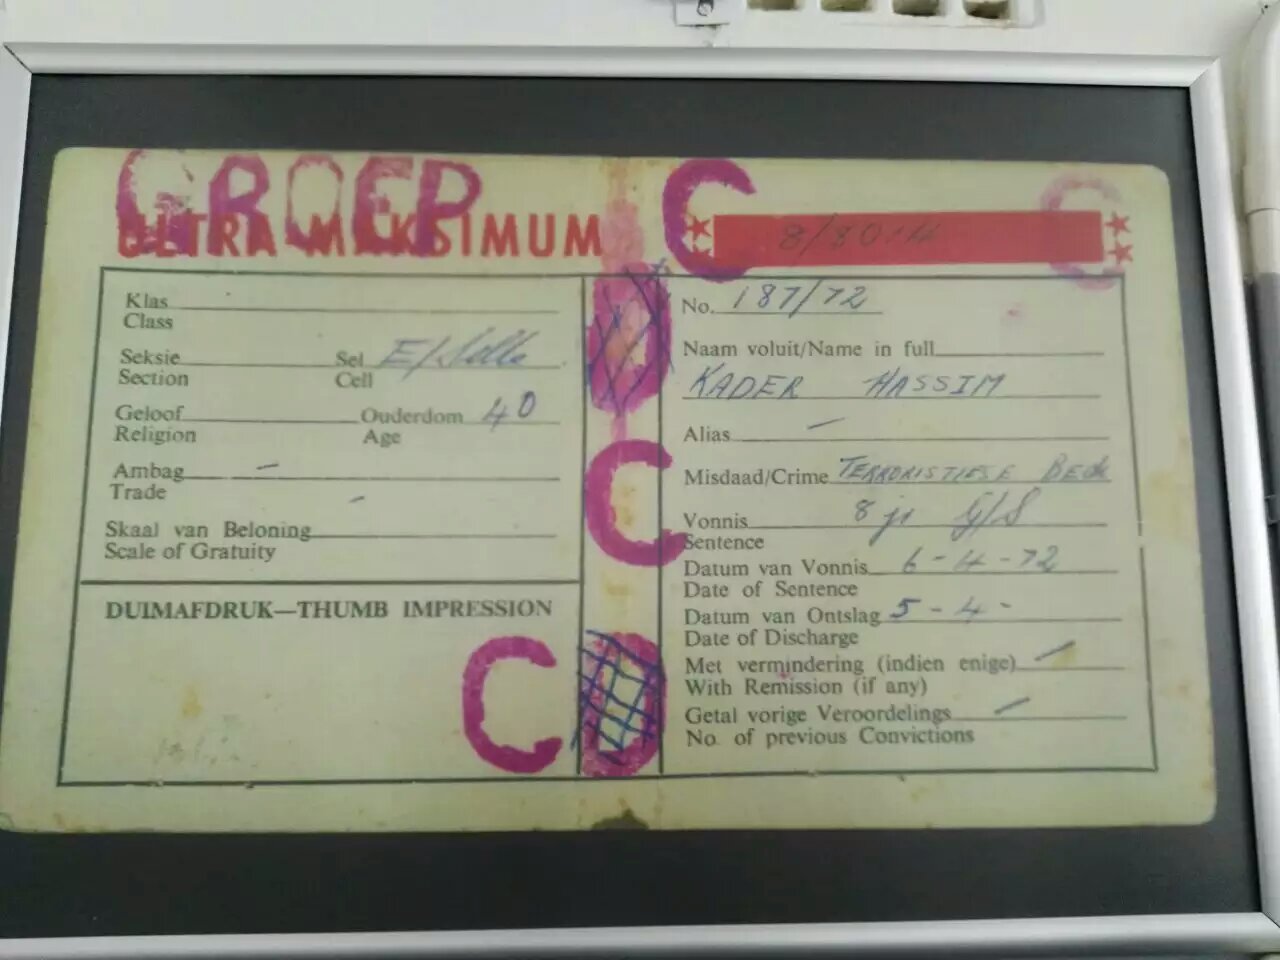 GROEP C C
ULTRA MAKSIMUM
8/8014
Klas
Class
Seksie Sel
Section Cell
Geloof Ouderdom 40
Religion Age
Ambag –
Trade –
Skaal van Beloning
Scale of Gratuity
DUIMAFDRUK—THUMB IMPRESSION
C
D
C
D
No. 187/72
Naam voluit/Name in full
KADER HASSIM
Alias –
Misdaad/Crime TERRORISTIESE BEDR
Vonnis 8 jr G/S
Sentence
Datum van Vonnis 6-4-72
Date of Sentence
Datum van Ontslag 5-4-
Date of Discharge
Met vermindering (indien enige) –
With Remission (if any)
Getal vorige Veroordelings –
No. of previous Convictions